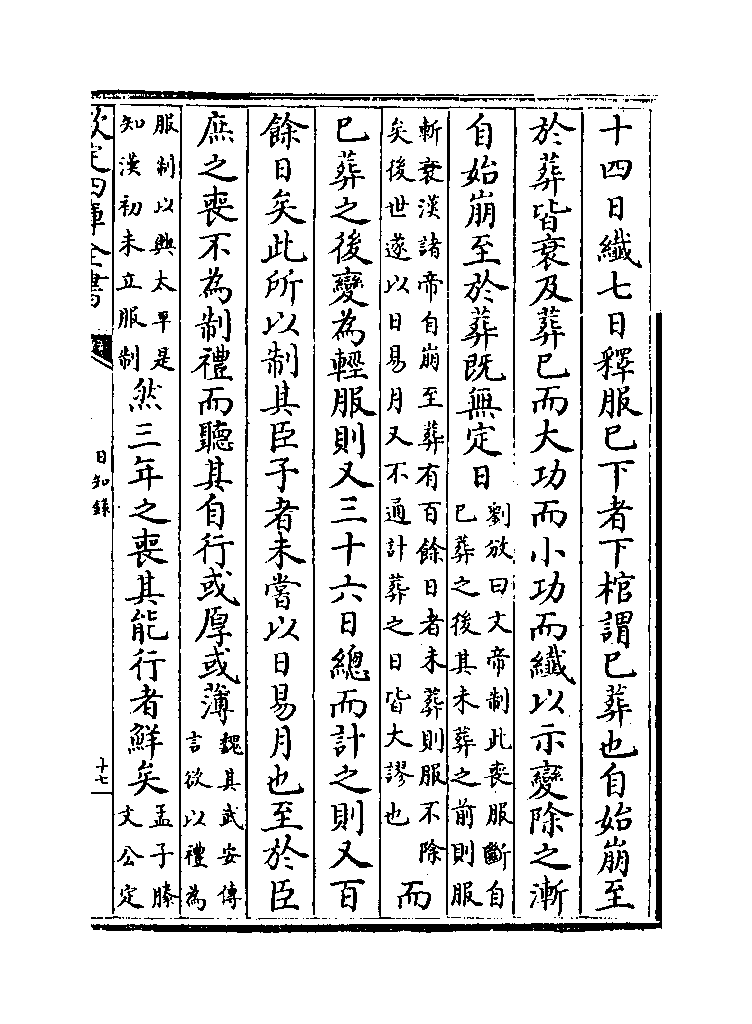 十四日纖七日釋服已下者下棺謂已葬也自始崩至
於葬皆衰及葬已而大功而小功而纖以示變除之漸
自始崩至於葬既無定日
劉攽曰文帝制此喪服斷自
已葬之後其未葬之前則服
斬衰漢諸帝自崩至葬有百餘日者未葬則服不除
矣後世遂以日易月又不通計葬之日皆大謬也
而
已葬之後變為輕服則又三十六日總而計之則又百
餘日矣此所以制其臣子者未嘗以日易月也至於臣
庶之喪不為制禮而聽其自行或厚或薄
魏其武安傳
言欲以禮為
服制以興太平是
知漢初未立服制
然三年之喪其能行者鮮矣
孟子滕
文公定
欽定四庫全書
日知錄
十七